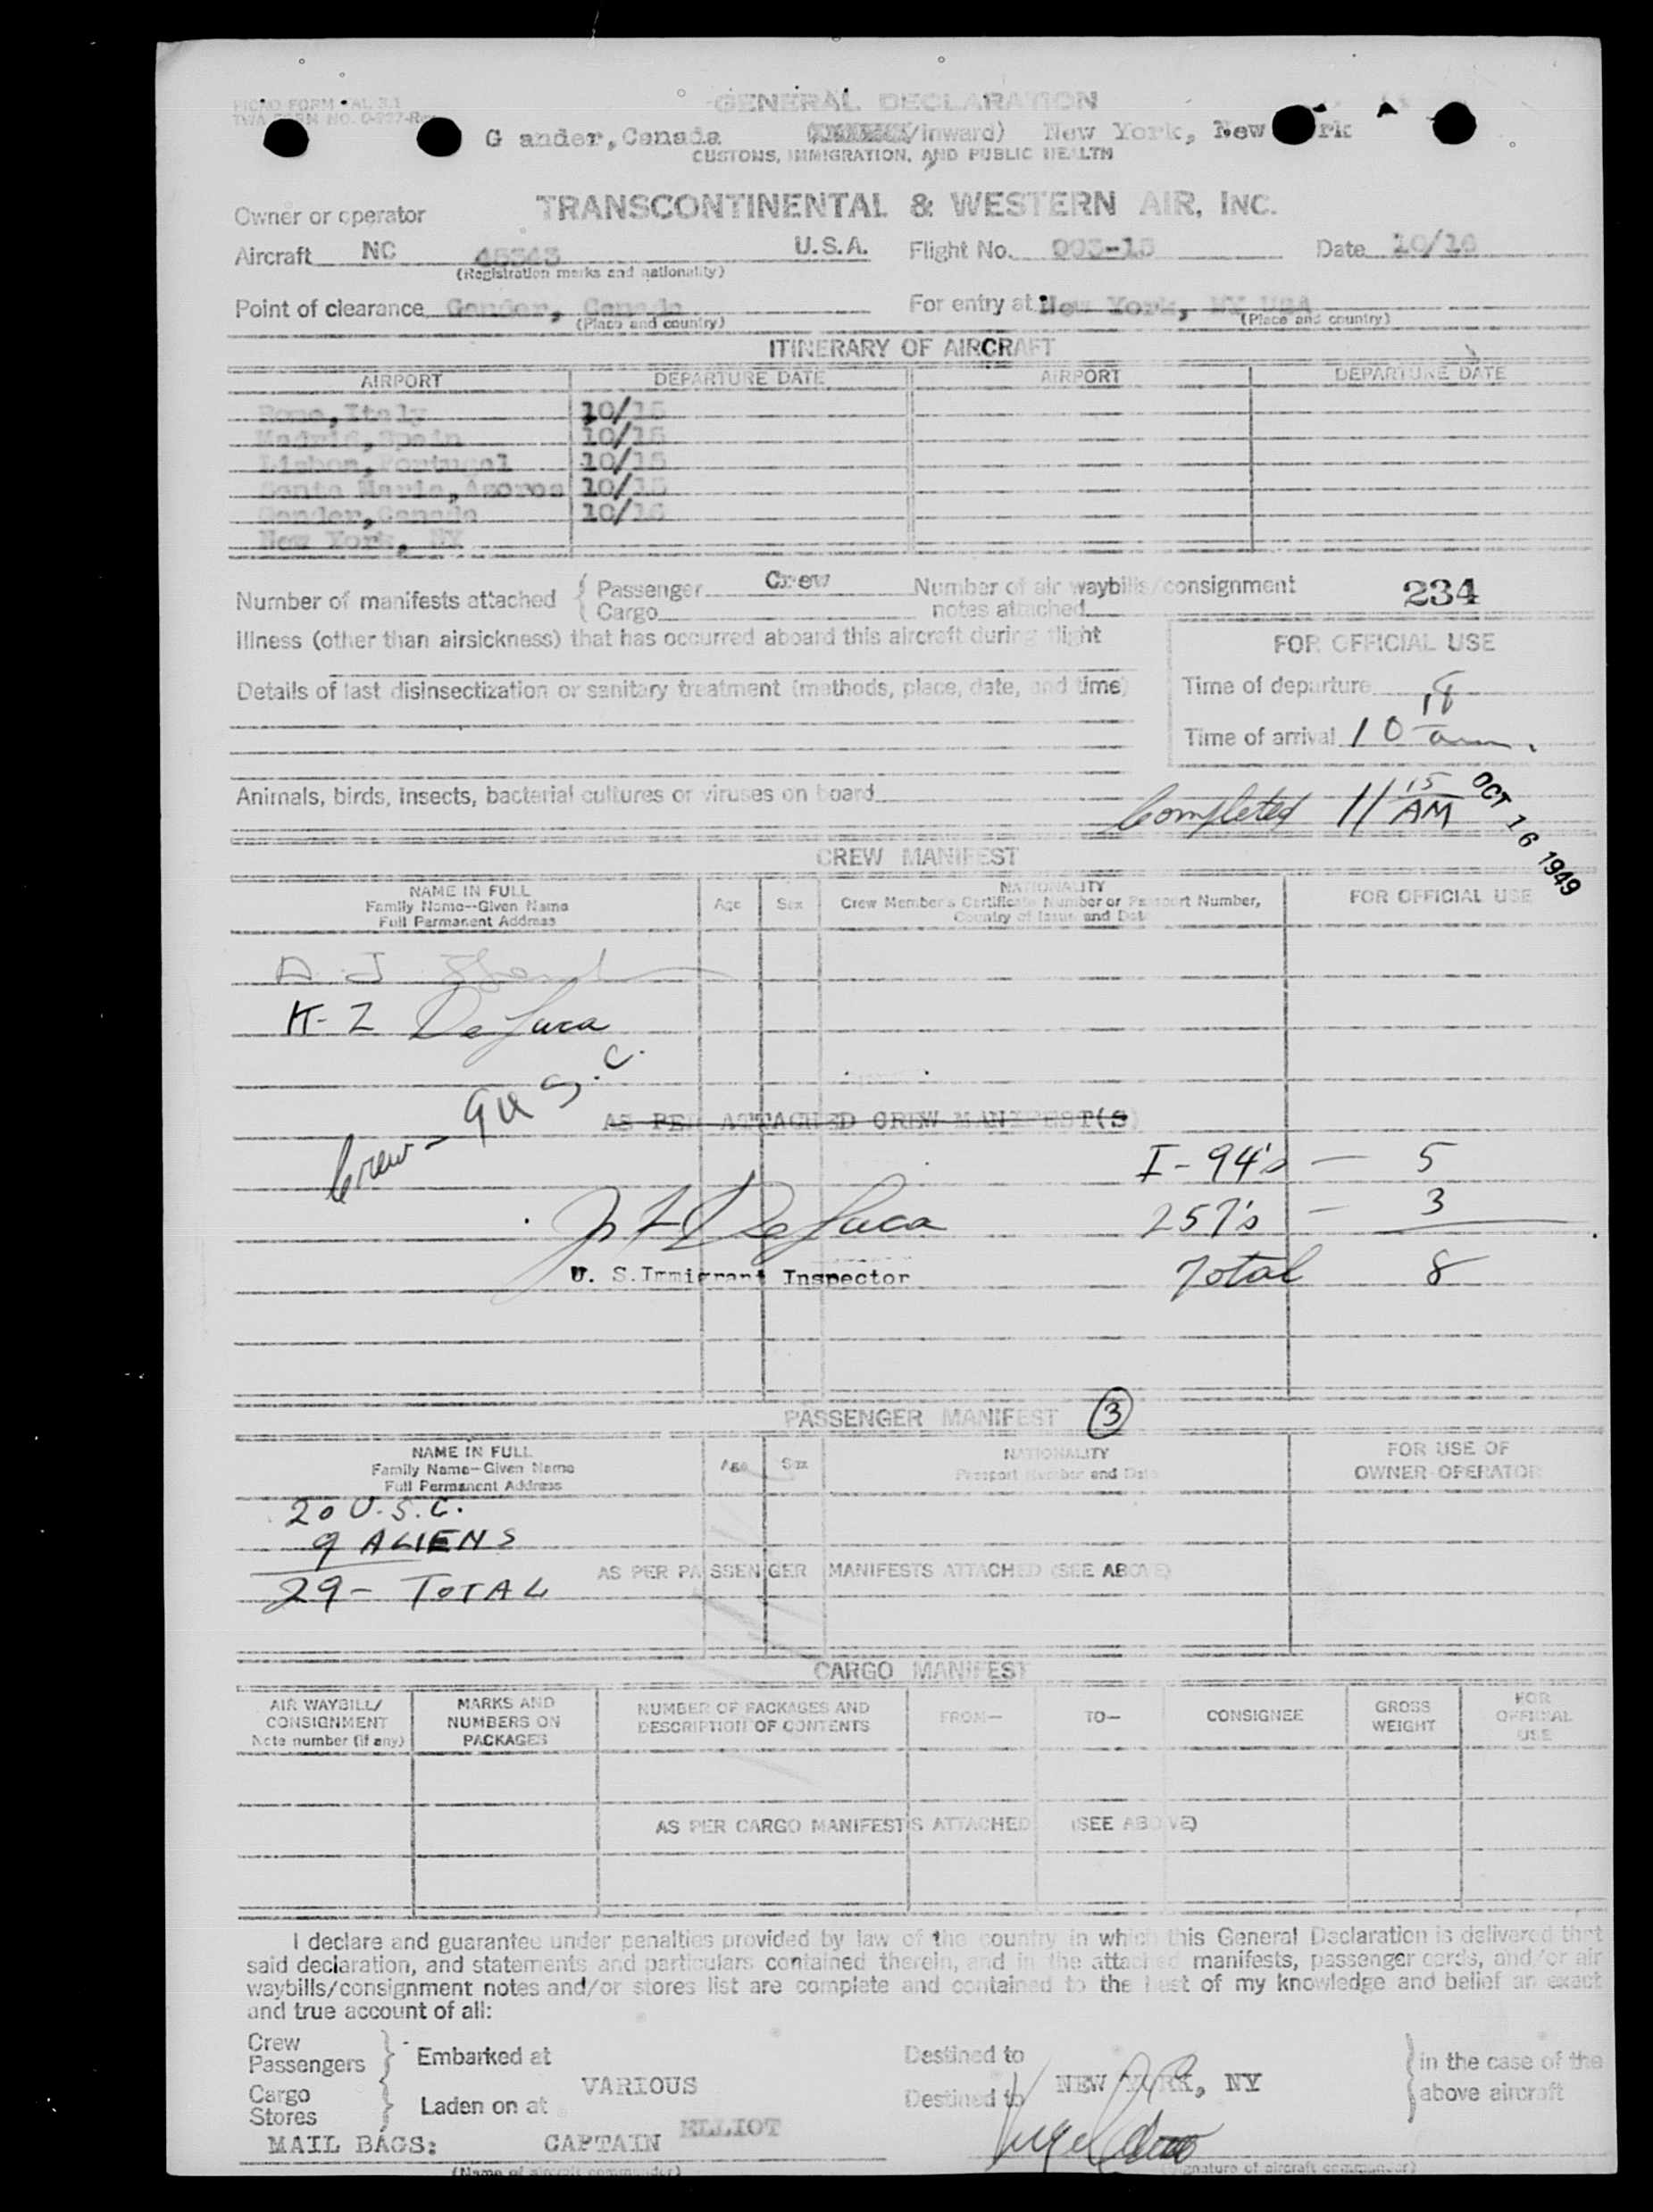 PICAO FORM
TWA FORM NO.
GENERAL DECLARATION
G ander,Canada /Inward) New York, New rk
CUSTOMS, IMMIGRATION, AND PUBLIC HEALTH
Owner or operator TRANSCONTINENTAL & WESTERN AIR, INC.
Aircraft NC U.S.A. Flight No. 993-15 Date 10/16
(Registration marks and nationality)
Point of clearance Gander, Canada For entry at New York, NY USA
(Place and country) (Place and country)
ITINERARY OF AIRCRAFT
AIRPORT DEPARTURE DATE AIRPORT DEPARTURE DATE
Rome,Italy 10/15
Madrid,Spain 10/15
Lisbon,Portugal 10/15
Santa Maria,Azores 10/15
Gander,Canada 10/16
New York, NY
Number of manifests attached { Passenger Crew Number of air waybills/consignment 234
Cargo notes attached
Illness (other than airsickness) that has occurred aboard this aircraft during flight
FOR OFFICIAL USE
Details of last disinsectization or sanitary treatment (methods, place, date, and time)
Time of departure
Time of arrival 10 am.
Animals, birds, insects, bacterial cultures or viruses on board
Completed 11 15 AM OCT 16 1949
CREW MANIFEST
NAME IN FULL
Family Name--Given Name
Full Permanent Address
Age Sex
NATIONALITY
Crew Member's Certificate Number or Passport Number,
Country of Issue and Date
FOR OFFICIAL USE
A J
De Luca
Crew - 9 U S.C.
AS PER ATTACHED CREW MANIFEST(S)
I-94's — 5
257's — 3
De Luca
U. S.Immigrant Inspector
Total 8
PASSENGER MANIFEST 3
NAME IN FULL
Family Name--Given Name
Full Permanent Address
Age Sex
NATIONALITY
Passport Number and Date
FOR USE OF
OWNER-OPERATOR
20 U.S.C.
9 ALIENS
29 - TOTAL
AS PER PASSENGER MANIFESTS ATTACHED (SEE ABOVE)
CARGO MANIFEST
AIR WAYBILL/
CONSIGNMENT
Note number (if any)
MARKS AND
NUMBERS ON
PACKAGES
NUMBER OF PACKAGES AND
DESCRIPTION OF CONTENTS
FROM—
TO—
CONSIGNEE
GROSS
WEIGHT
FOR
OFFICIAL
USE
AS PER CARGO MANIFESTS ATTACHED (SEE ABOVE)
I declare and guarantee under penalties provided by law of the country in which this General Declaration is delivered that
said declaration, and statements and particulars contained therein, and in the attached manifests, passenger cards, and/or air
waybills/consignment notes and/or stores list are complete and contained to the best of my knowledge and belief an exact
and true account of all:
Crew
Passengers } Embarked at Destined to
VARIOUS NEW YORK, NY
Cargo
Stores } Laden on at Destined to
in the case of the
above aircraft
MAIL BAGS: CAPTAIN ELLIOT
(Name of aircraft commander) (Signature of aircraft commander)